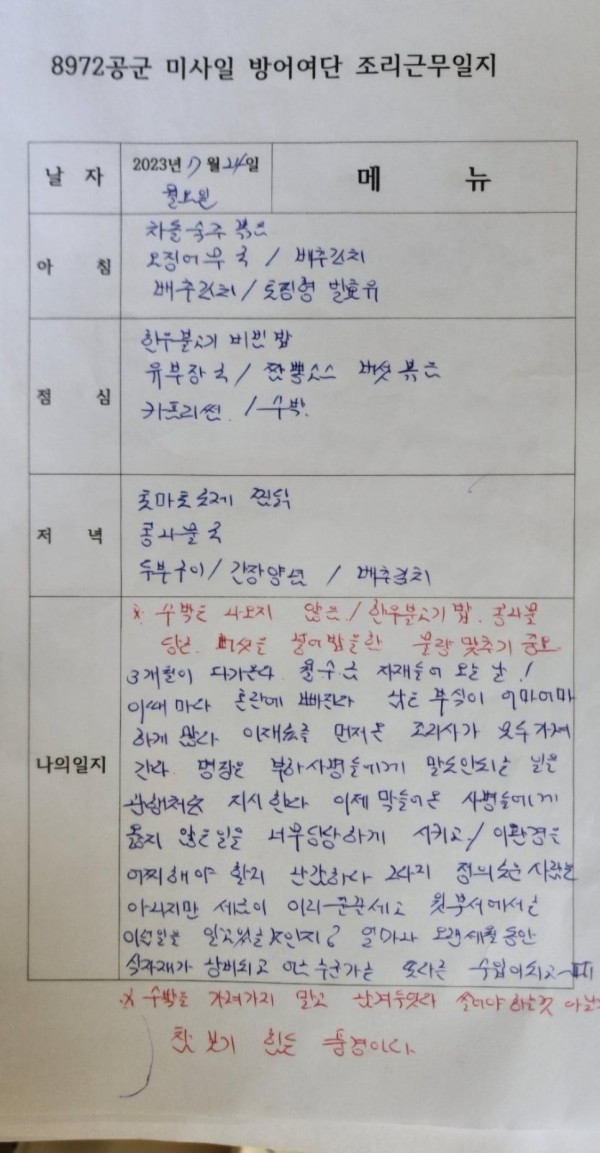 8972공군 미사일 방어여단 조리근무일지
날 자
2023년 7월 24일
월요일
메 뉴
아 침
차돌숙주 볶음
오징어무국 / 배추김치
배추김치 / 호상형 발효유
점 심
한우불고기 비빔밥
유부장국 / 짬뽕소스 버섯볶음
카프리썬 / 수박
저 녁
토마토 찜닭
콩나물국
두부구이 / 간장양념 / 배추김치
나의일지
※ 수박은 나오지 않음 / 한우불고기밥. 콩나물
당근. 버섯을 섞어 물량 맞추기 중요
3개월이 다가온다 월수금 자재들어 오는 날!
이때마다 혼란에 빠진다 남은 부식이 어마어마
하게 많다 이재료를 먼저온 조리사가 모두가져
간다. 명장은 부하사병들에게 말도안되는 일을
지시한다 이제 막들어온 사병들에게
옳지 않은일을 너무당당하게 시키고 / 이환경을
어찌해야 할지 난감하다 정의로운 사람은
아니지만 세금이 이리 줄줄새고 윗부서에서는
이런일을 알고있는것인지? 얼마나 오랜세월동안
식자재가 낭비되고 누군가는 또다른 수입이되고
※ 수박을 가져가지 말고 남겨두었다 써야하는것 아닌가
참 보기 힘든 풍경이다